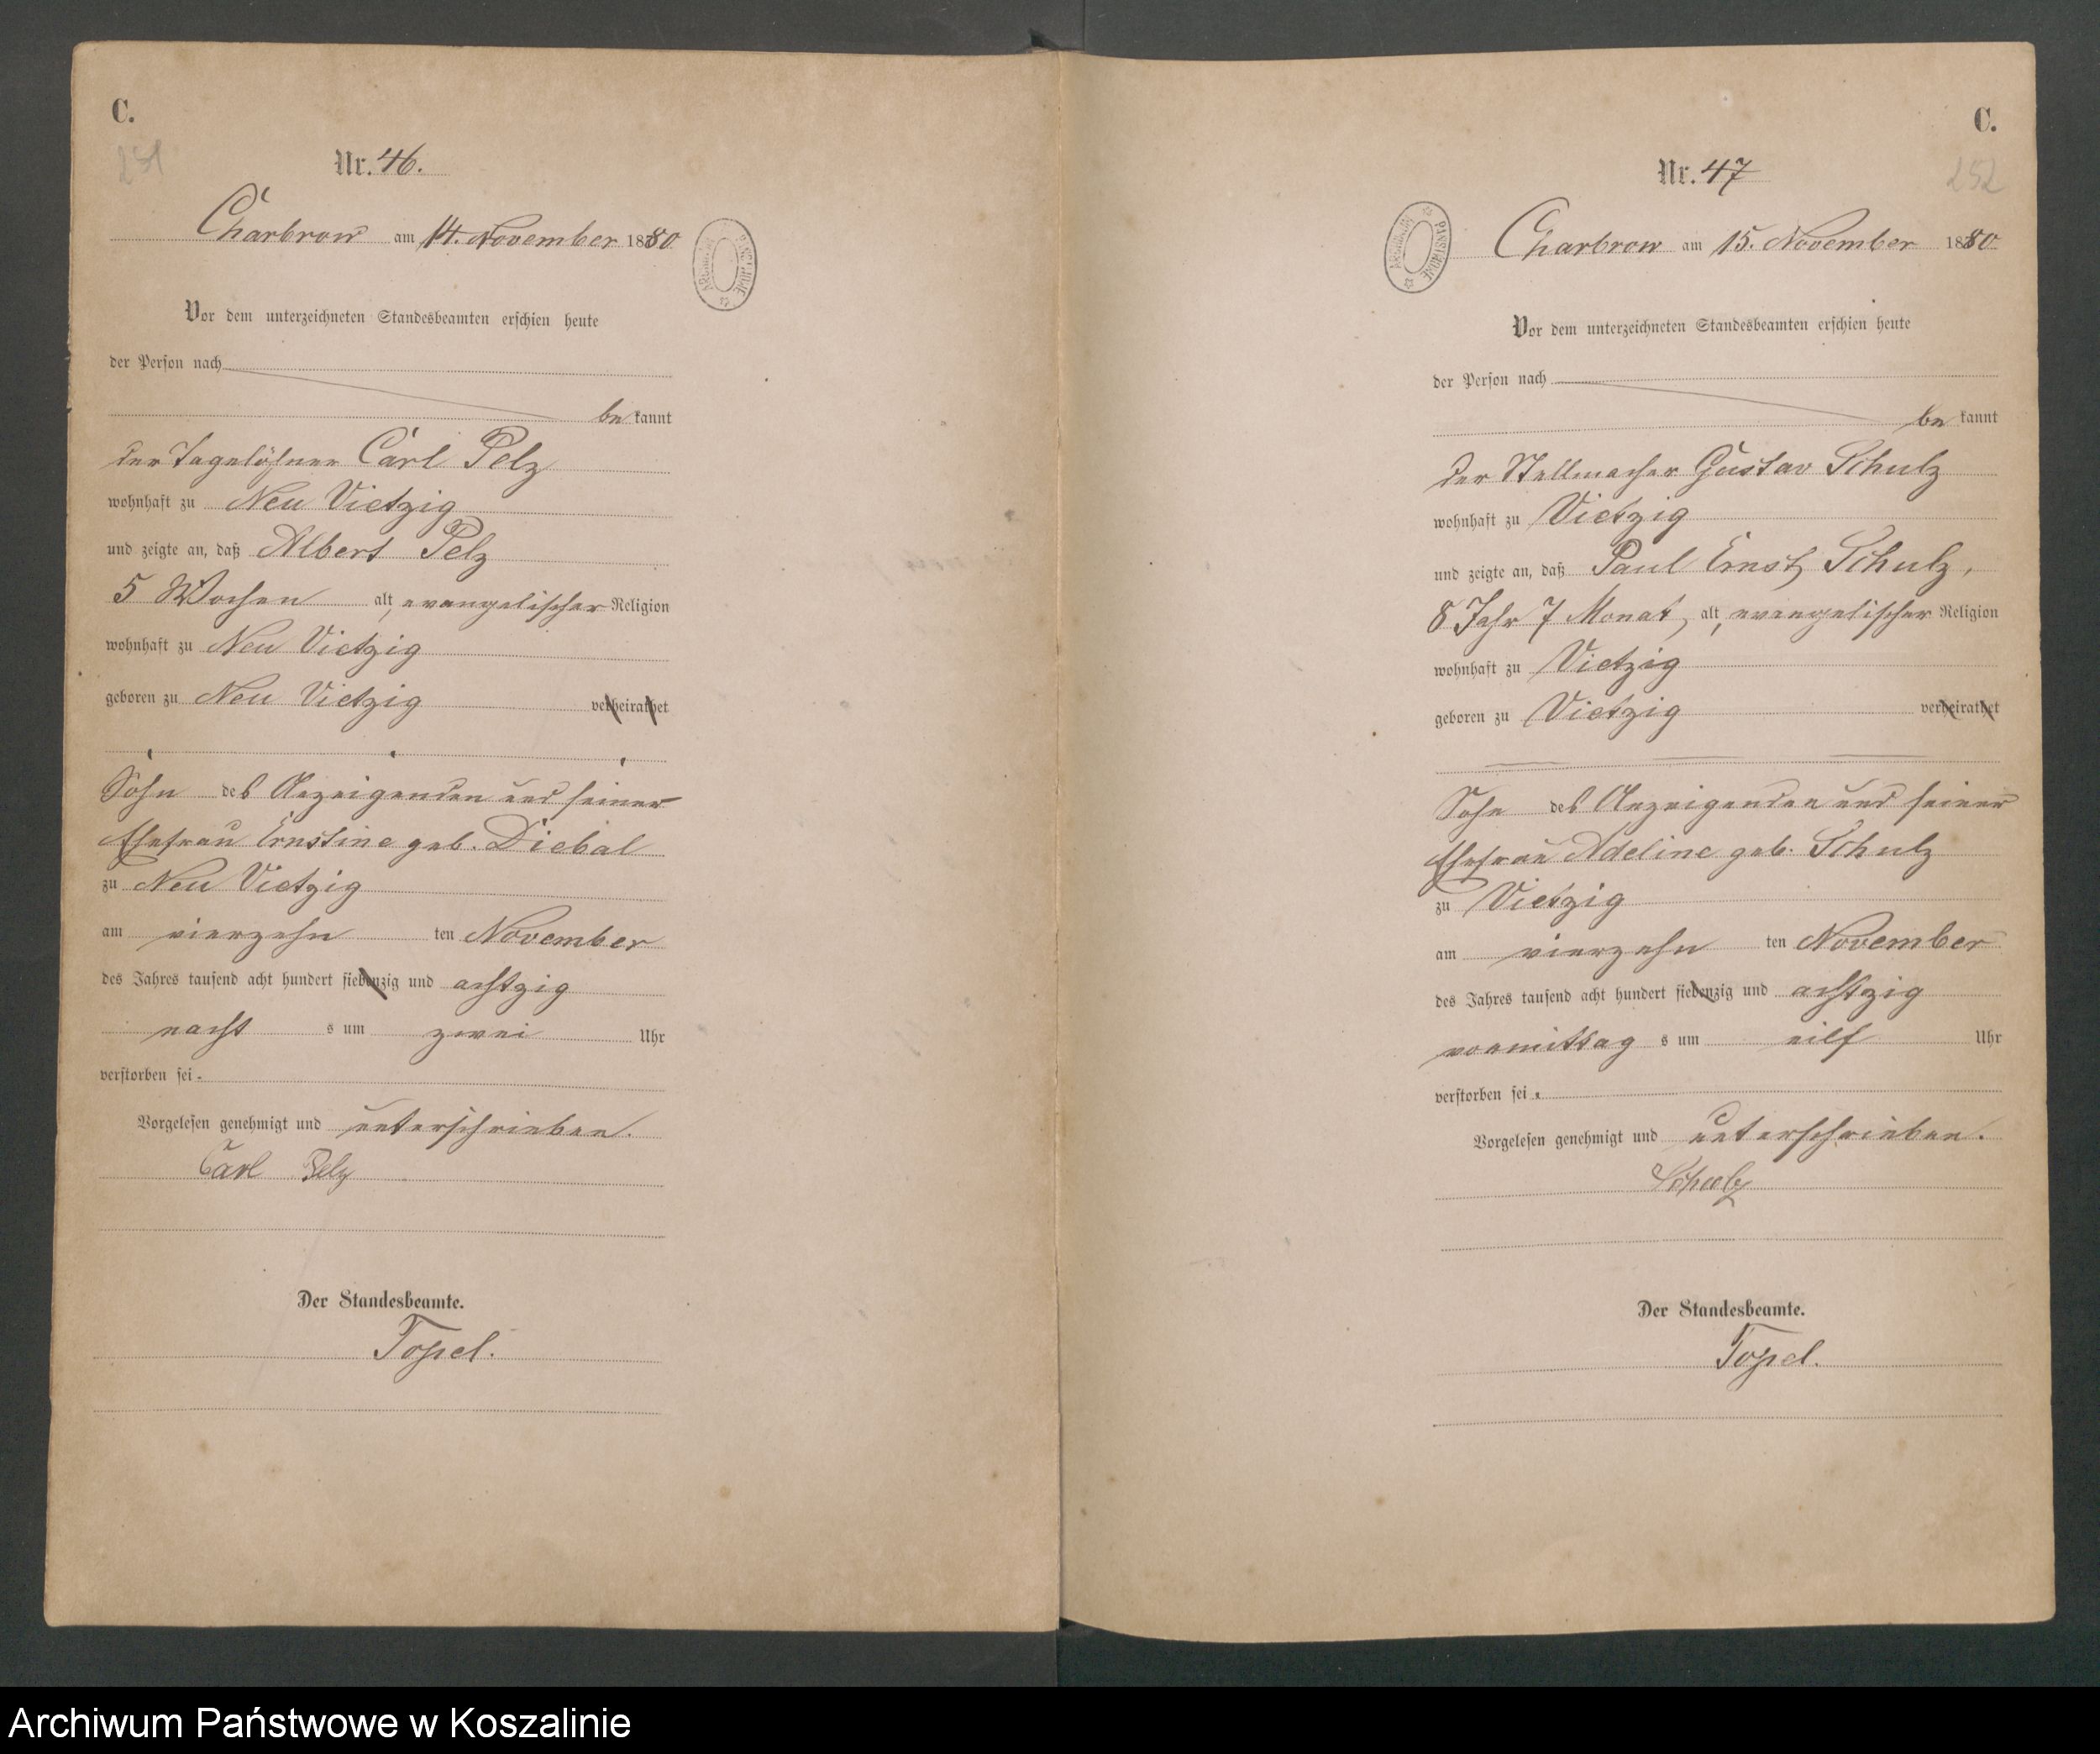 C.
251
Nr. 46.
Charbrow am 14. November 1880
Vor dem unterzeichneten Standesbeamten erschien heute
der Person nach
bekannt
der Tagelöhner Carl Pelz
wohnhaft zu Neu Vietzig
und zeigte an, daß Albert Pelz
5 Wochen alt, evangelischer Religion
wohnhaft zu Neu Vietzig
geboren zu Neu Vietzig verheirathet
Sohn des Anzeigenden und seiner
Ehefrau Ernstine geb. Diebal
zu Neu Vietzig
am vierzehn ten November
des Jahres tausend acht hundert siebenzig und achtzig
nacht s um zwei Uhr
verstorben sei.
Vorgelesen genehmigt und unterschrieben.
Carl Pelz
Der Standesbeamte.
Topel.
C.
252
Nr. 47
Charbrow am 15. November 1880
Vor dem unterzeichneten Standesbeamten erschien heute
der Person nach
bekannt
der Stellmacher Gustav Schulz
wohnhaft zu Vietzig
und zeigte an, daß Paul Ernst Schulz,
8 Jahr 7 Monat, alt, evangelischer Religion
wohnhaft zu Vietzig
geboren zu Vietzig verheirathet
Sohn des Anzeigenden und seiner
Ehefrau Adeline geb. Schulz
zu Vietzig
am vierzehn ten November
des Jahres tausend acht hundert siebenzig und achtzig
vormittag s um eilf Uhr
verstorben sei.
Vorgelesen genehmigt und unterschrieben.
Schulz
Der Standesbeamte.
Topel.
ARCHIWUM PAŃSTWOWE
ARCHIWUM PAŃSTWOWE
Archiwum Państwowe w Koszalinie